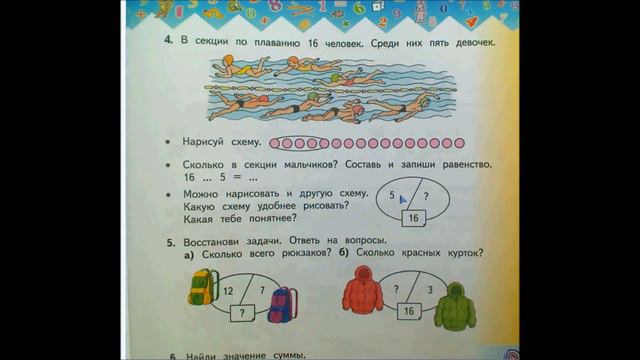 4. В секции по плаванию 16 человек. Среди них пять девочек.
• Нарисуй схему.
• Сколько в секции мальчиков? Составь и запиши равенство.
16 ... 5 = ...
• Можно нарисовать и другую схему.
Какую схему удобнее рисовать?
Какая тебе понятнее?
5 ?
16
5. Восстанови задачи. Ответь на вопросы.
а) Сколько всего рюкзаков? б) Сколько красных курток?
12 7
?
? 3
16
6. Найди значение суммы.